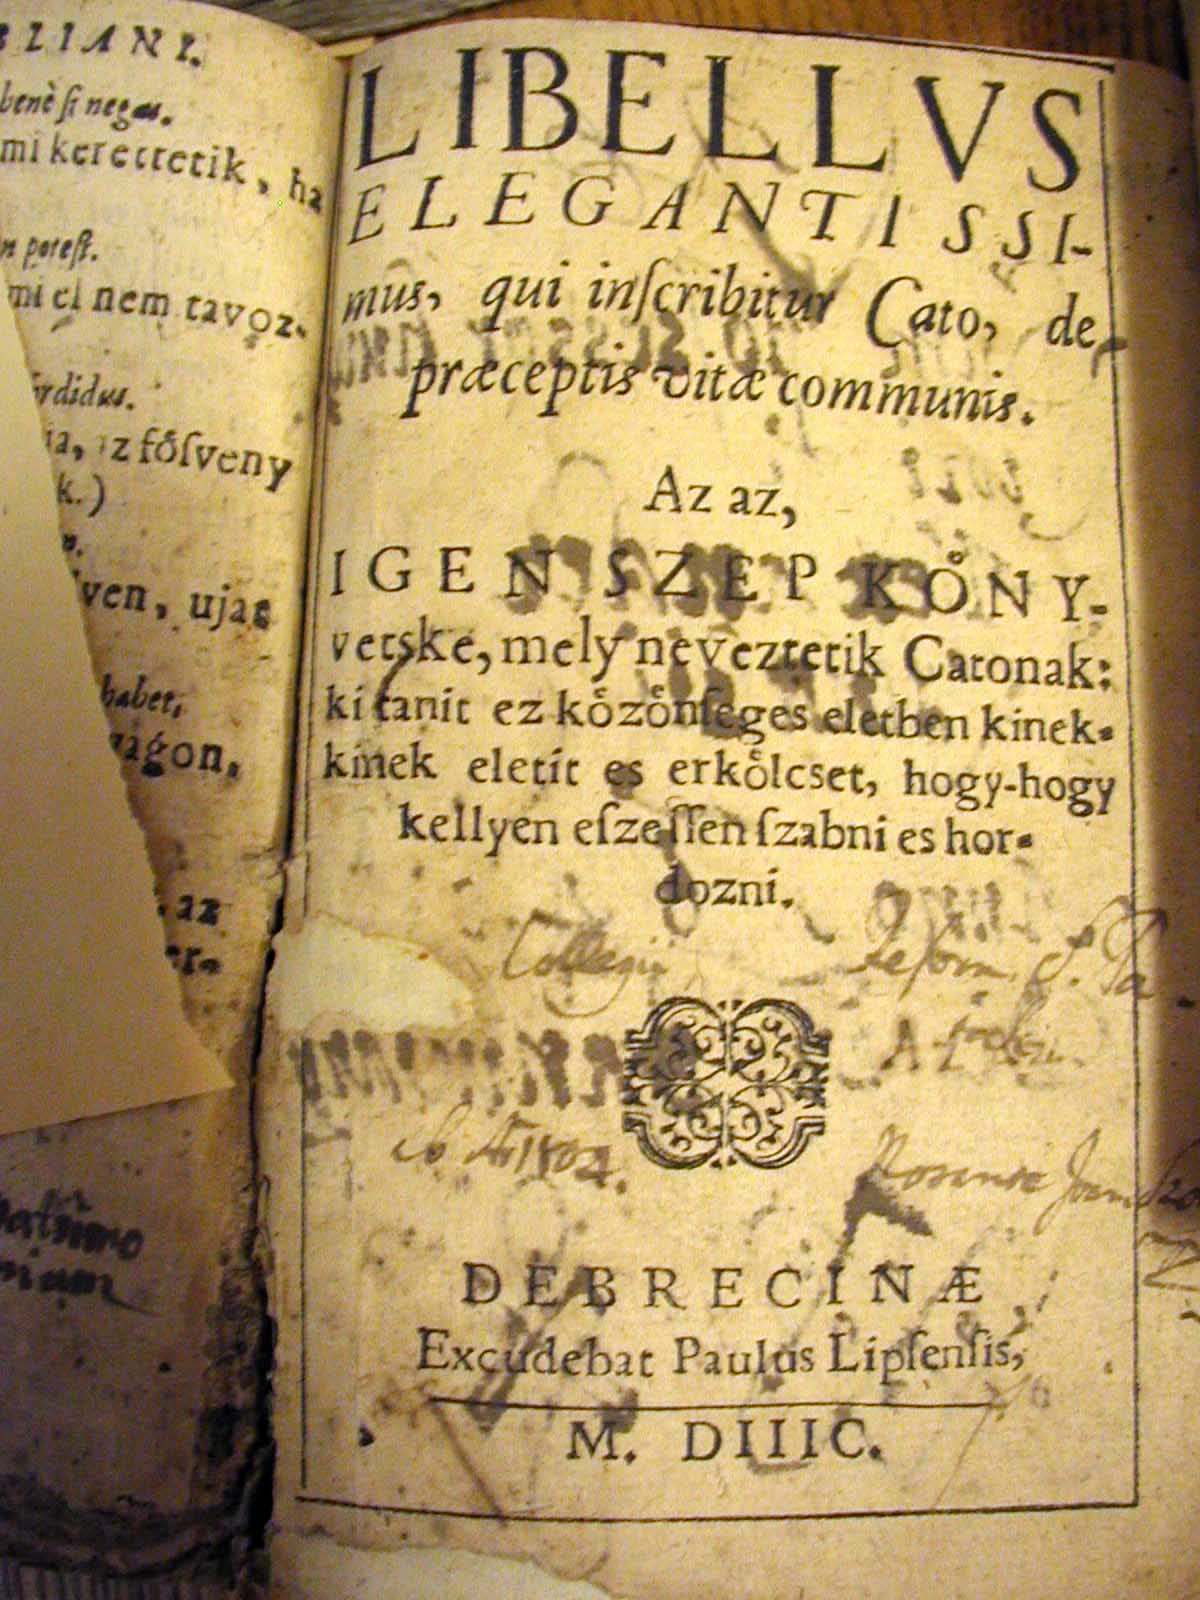 LIANI.
benè ſi negas.
mi kerettetik, ha
poteſt.
mi el nem tavoz-
ordidus.
az föſveny
k.)
ven, ujas
habet,
az
LIBELLVS
ELEGANTISSI-
mus, qui inſcribitur Cato, de
præceptis vitæ communis.
Az az,
IGEN SZEP KÖNY-
vetske, mely neveztetik Catonak:
ki tanit ez közönſeges eletben kinek-
kinek eletit es erkölcset, hogy-hogy
kellyen eſzeſſen ſzabni es hor-
dozni.
Collegii Reform. S. Pa
A
DEBRECINÆ
Excudebat Paulus Lipſenſis,
M. DIIIC.